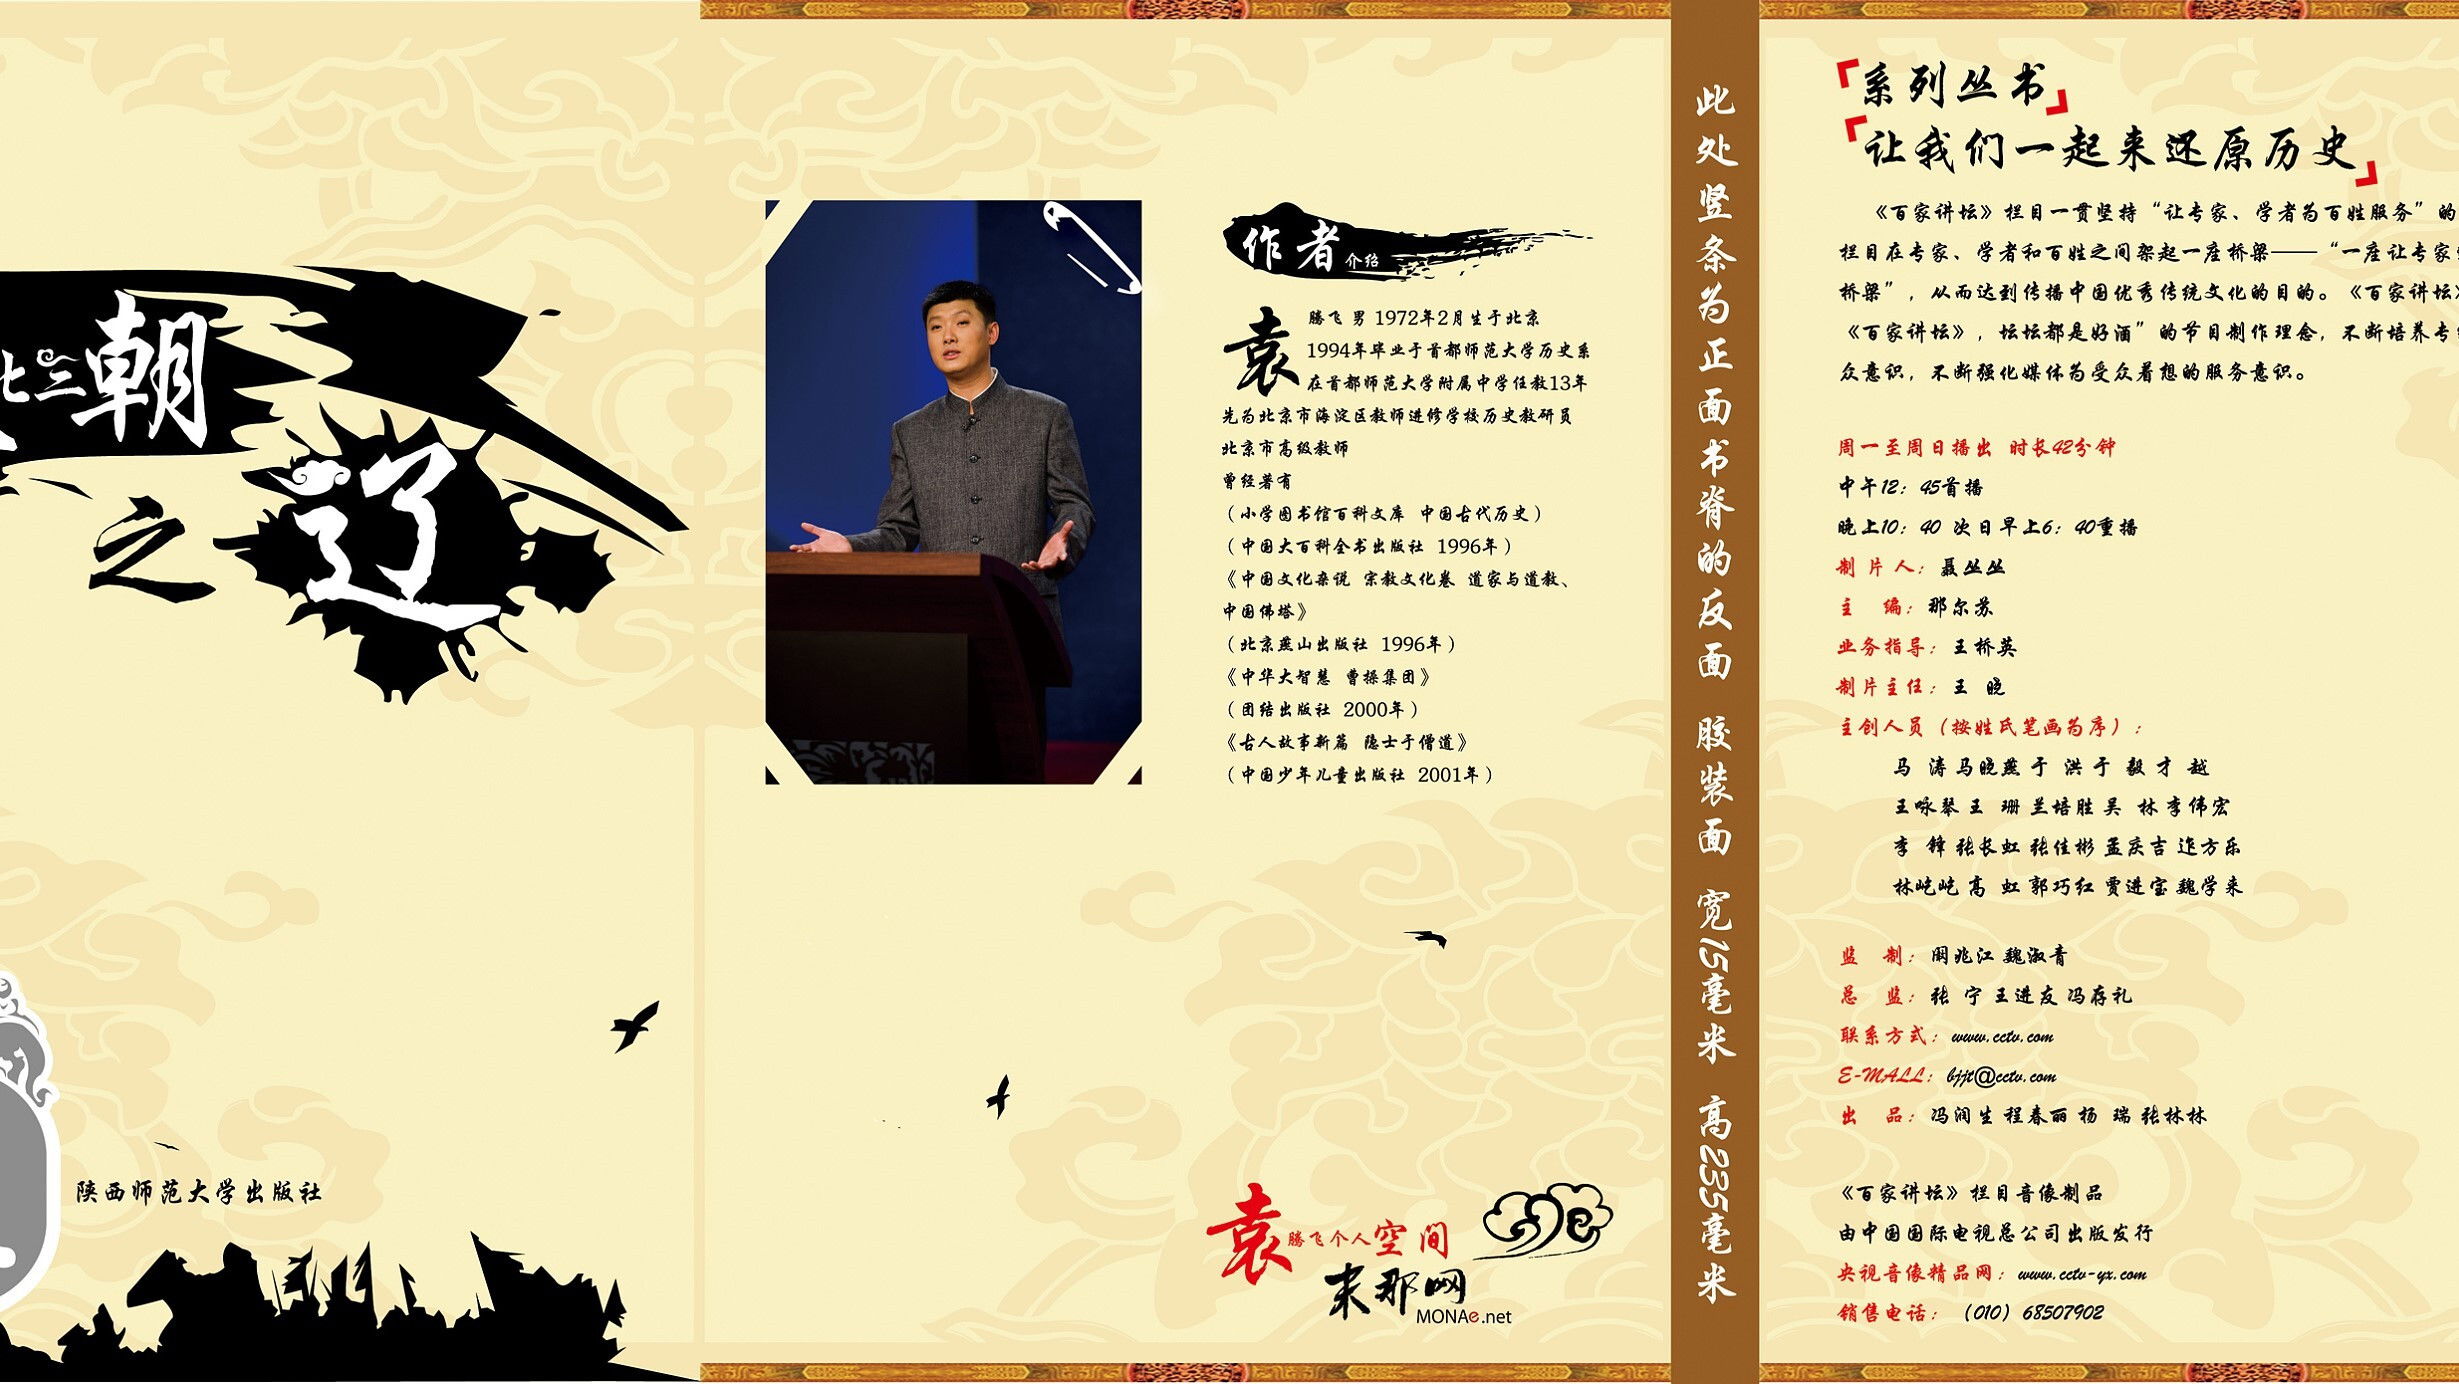 三朝
之
辽
陕西师范大学出版社
作者介绍
袁腾飞 男 1972年2月生于北京
1994年毕业于首都师范大学历史系
在首都师范大学附属中学任教13年
先为北京市海淀区教师进修学校历史教研员
北京市高级教师
曾经著有
（小学图书馆百科文库 中国古代历史）
（中国大百科全书出版社 1996年）
《中国文化杂说 宗教文化卷 道家与道教、
中国佛塔》
（北京燕山出版社 1996年）
《中华大智慧 曹操集团》
（团结出版社 2000年）
《古人故事新篇 隐士于僧道》
（中国少年儿童出版社 2001年）
袁腾飞个人空间
末那网
MONAe.net
此处竖条为正面书脊的反面 胶装面 宽15毫米 高235毫米
「系列丛书」
「让我们一起来还原历史」
《百家讲坛》栏目一贯坚持“让专家、学者为百姓服务”的
栏目在专家、学者和百姓之间架起一座桥梁——“一座让专家
桥梁”，从而达到传播中国优秀传统文化的目的。《百家讲坛》
《百家讲坛》，坛坛都是好酒”的节目制作理念，不断培养专
众意识，不断强化媒体为受众着想的服务意识。
周一至周日播出 时长42分钟
中午12：45首播
晚上10：40 次日早上6：40重播
制片人：聂丛丛
主 编：那尔苏
业务指导：王桥英
制片主任：王 晓
主创人员（按姓氏笔画为序）：
马 涛 马晓燕 于 洪 于 毅 才 越
王咏琴 王 珊 兰培胜 吴 林 李伟宏
李 锋 张长虹 张佳彬 孟庆吉 迮方乐
林屹屹 高 虹 郭巧红 贾进宝 魏学来
监 制：阚兆江 魏淑青
总 监：张 宁 王进友 冯存礼
联系方式：www.cctv.com
E-MALL：bjjt@cctv.com
出 品：冯润生 程春丽 杨 瑞 张林林
《百家讲坛》栏目音像制品
由中国国际电视总公司出版发行
央视音像精品网：www.cctv-yx.com
销售电话：（010）68507902